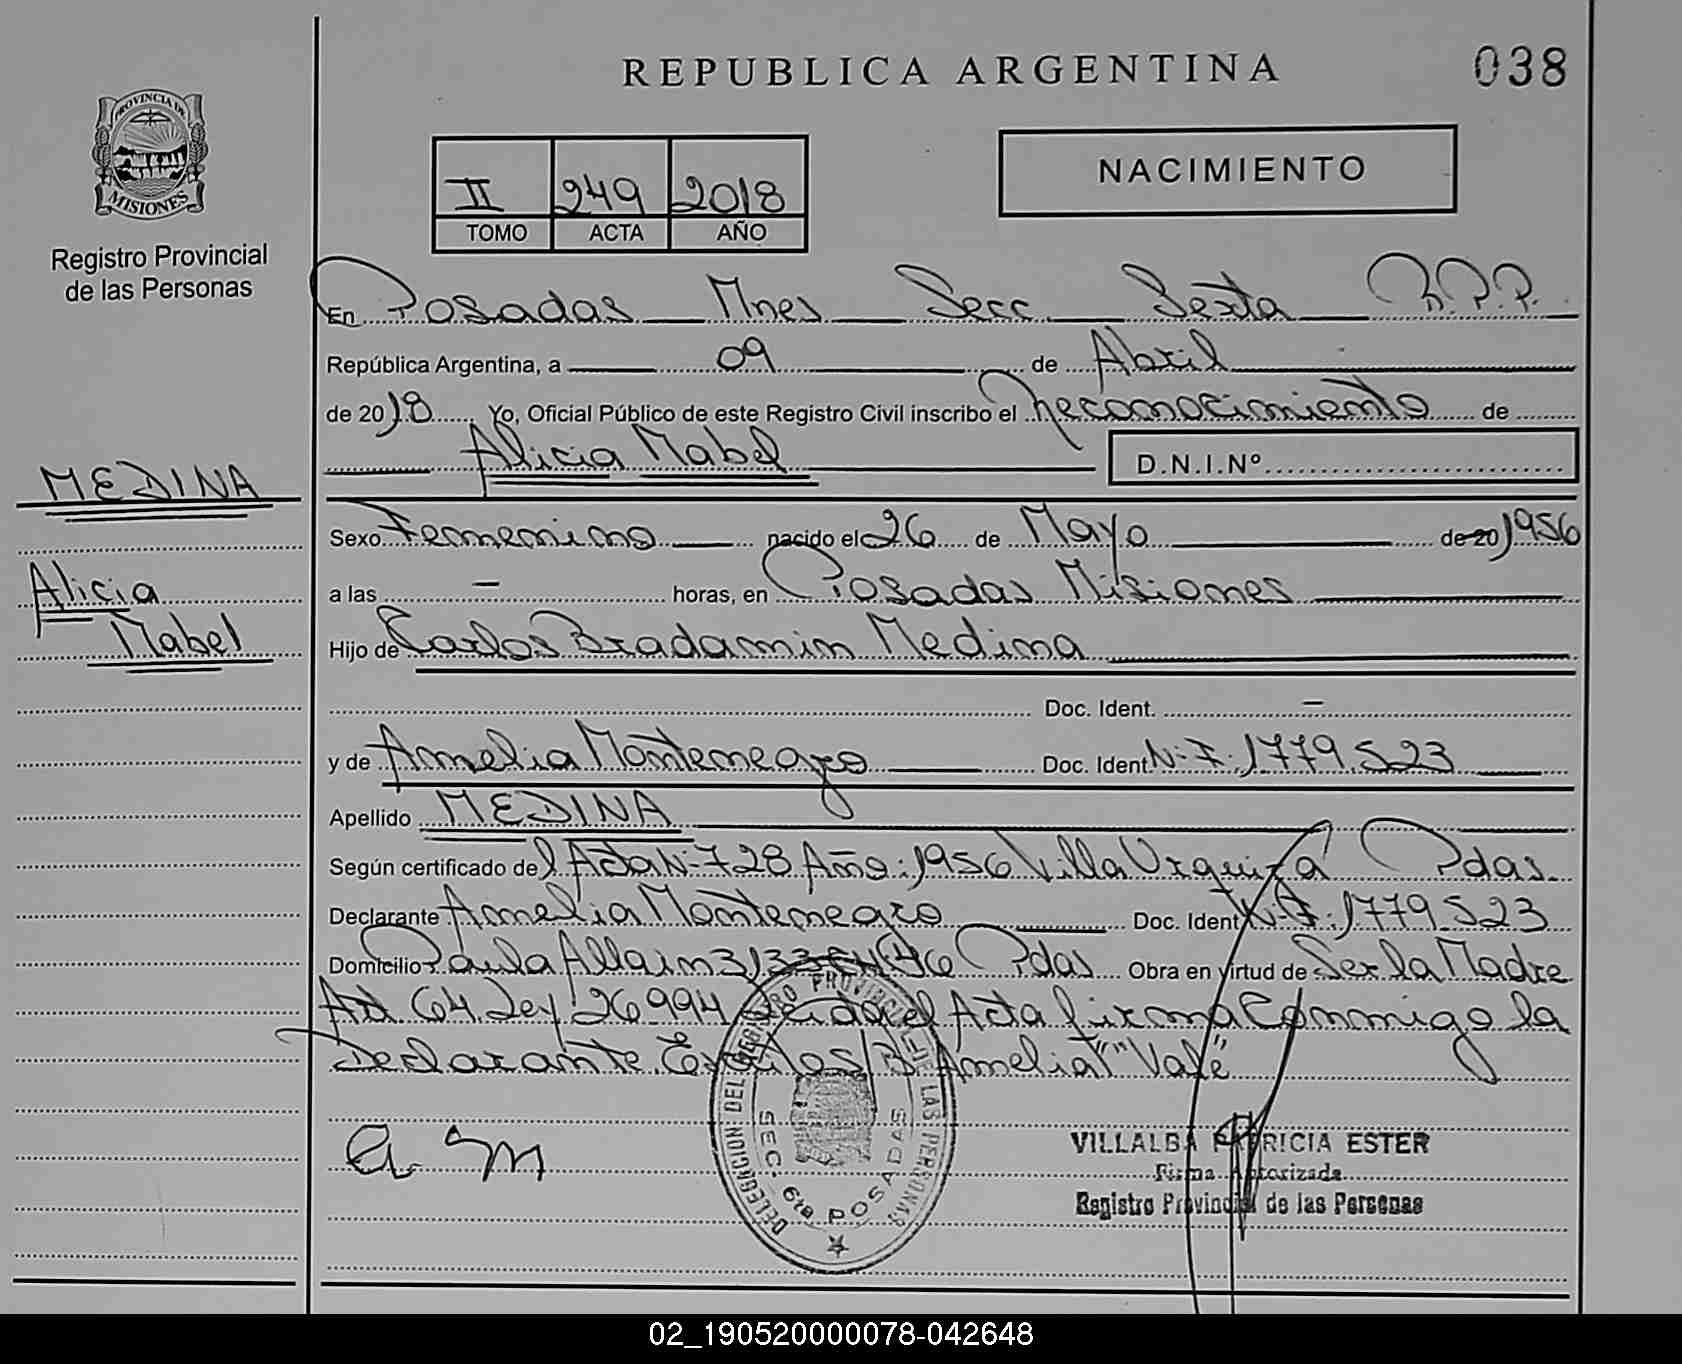 REPUBLICA ARGENTINA
038
PROVINCIA DE
MISIONES
Registro Provincial
de las Personas
II 249 2018
TOMO ACTA AÑO
NACIMIENTO
En Posadas Mnes Secc. Sexta R.P.P.
República Argentina, a 09 de Abril
de 2018 Yo, Oficial Público de este Registro Civil inscribo el Reconocimiento de
Alicia Mabel
D.N.I.Nº
MEDINA
Alicia
Mabel
Sexo Femenino nacido el 26 de Mayo de 20 1956
a las - horas, en Posadas Misiones
Hijo de Carlos Bradamin Medina
Doc. Ident. -
y de Amelia Montenegro Doc. Ident N-I: 1779.523
Apellido MEDINA
Según certificado del Acta N-728 Año: 1956 Villa Urquiza Pdas.
Declarante Amelia Montenegro Doc. Ident N-I: 1779.523
Domicilio Paula Allain Pdas Obra en virtud de Ser la Madre
Art. 64 Ley 26994 Leida el Acta firma Conmigo la
Declarante. Amelia" "Vale"
a m
DELEGACION DEL REGISTRO PROVINCIAL DE LAS PERSONAS
SEC. 6ta POSADAS
VILLALBA PATRICIA ESTER
Firma Autorizada
Registro Provincial de las Personas
02_190520000078-042648